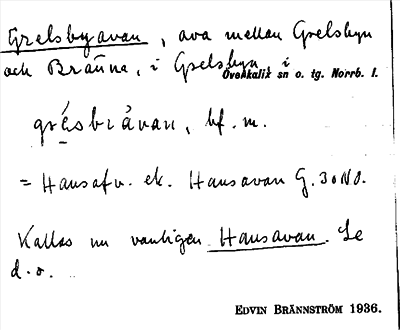 Grelsbyavan, ava mellan Grelsbyn
och Bränna, i Grelsbyn, i
Överkalix sn o. tg. Norrb. l.
gré̱sbi̯ávan, bf. m.
= Hansafv. ek. Hansavan G. 30 NO.
Kallas nu vanligen Hansavan. Se
d. o.
EDVIN BRÄNNSTRÖM 1936.